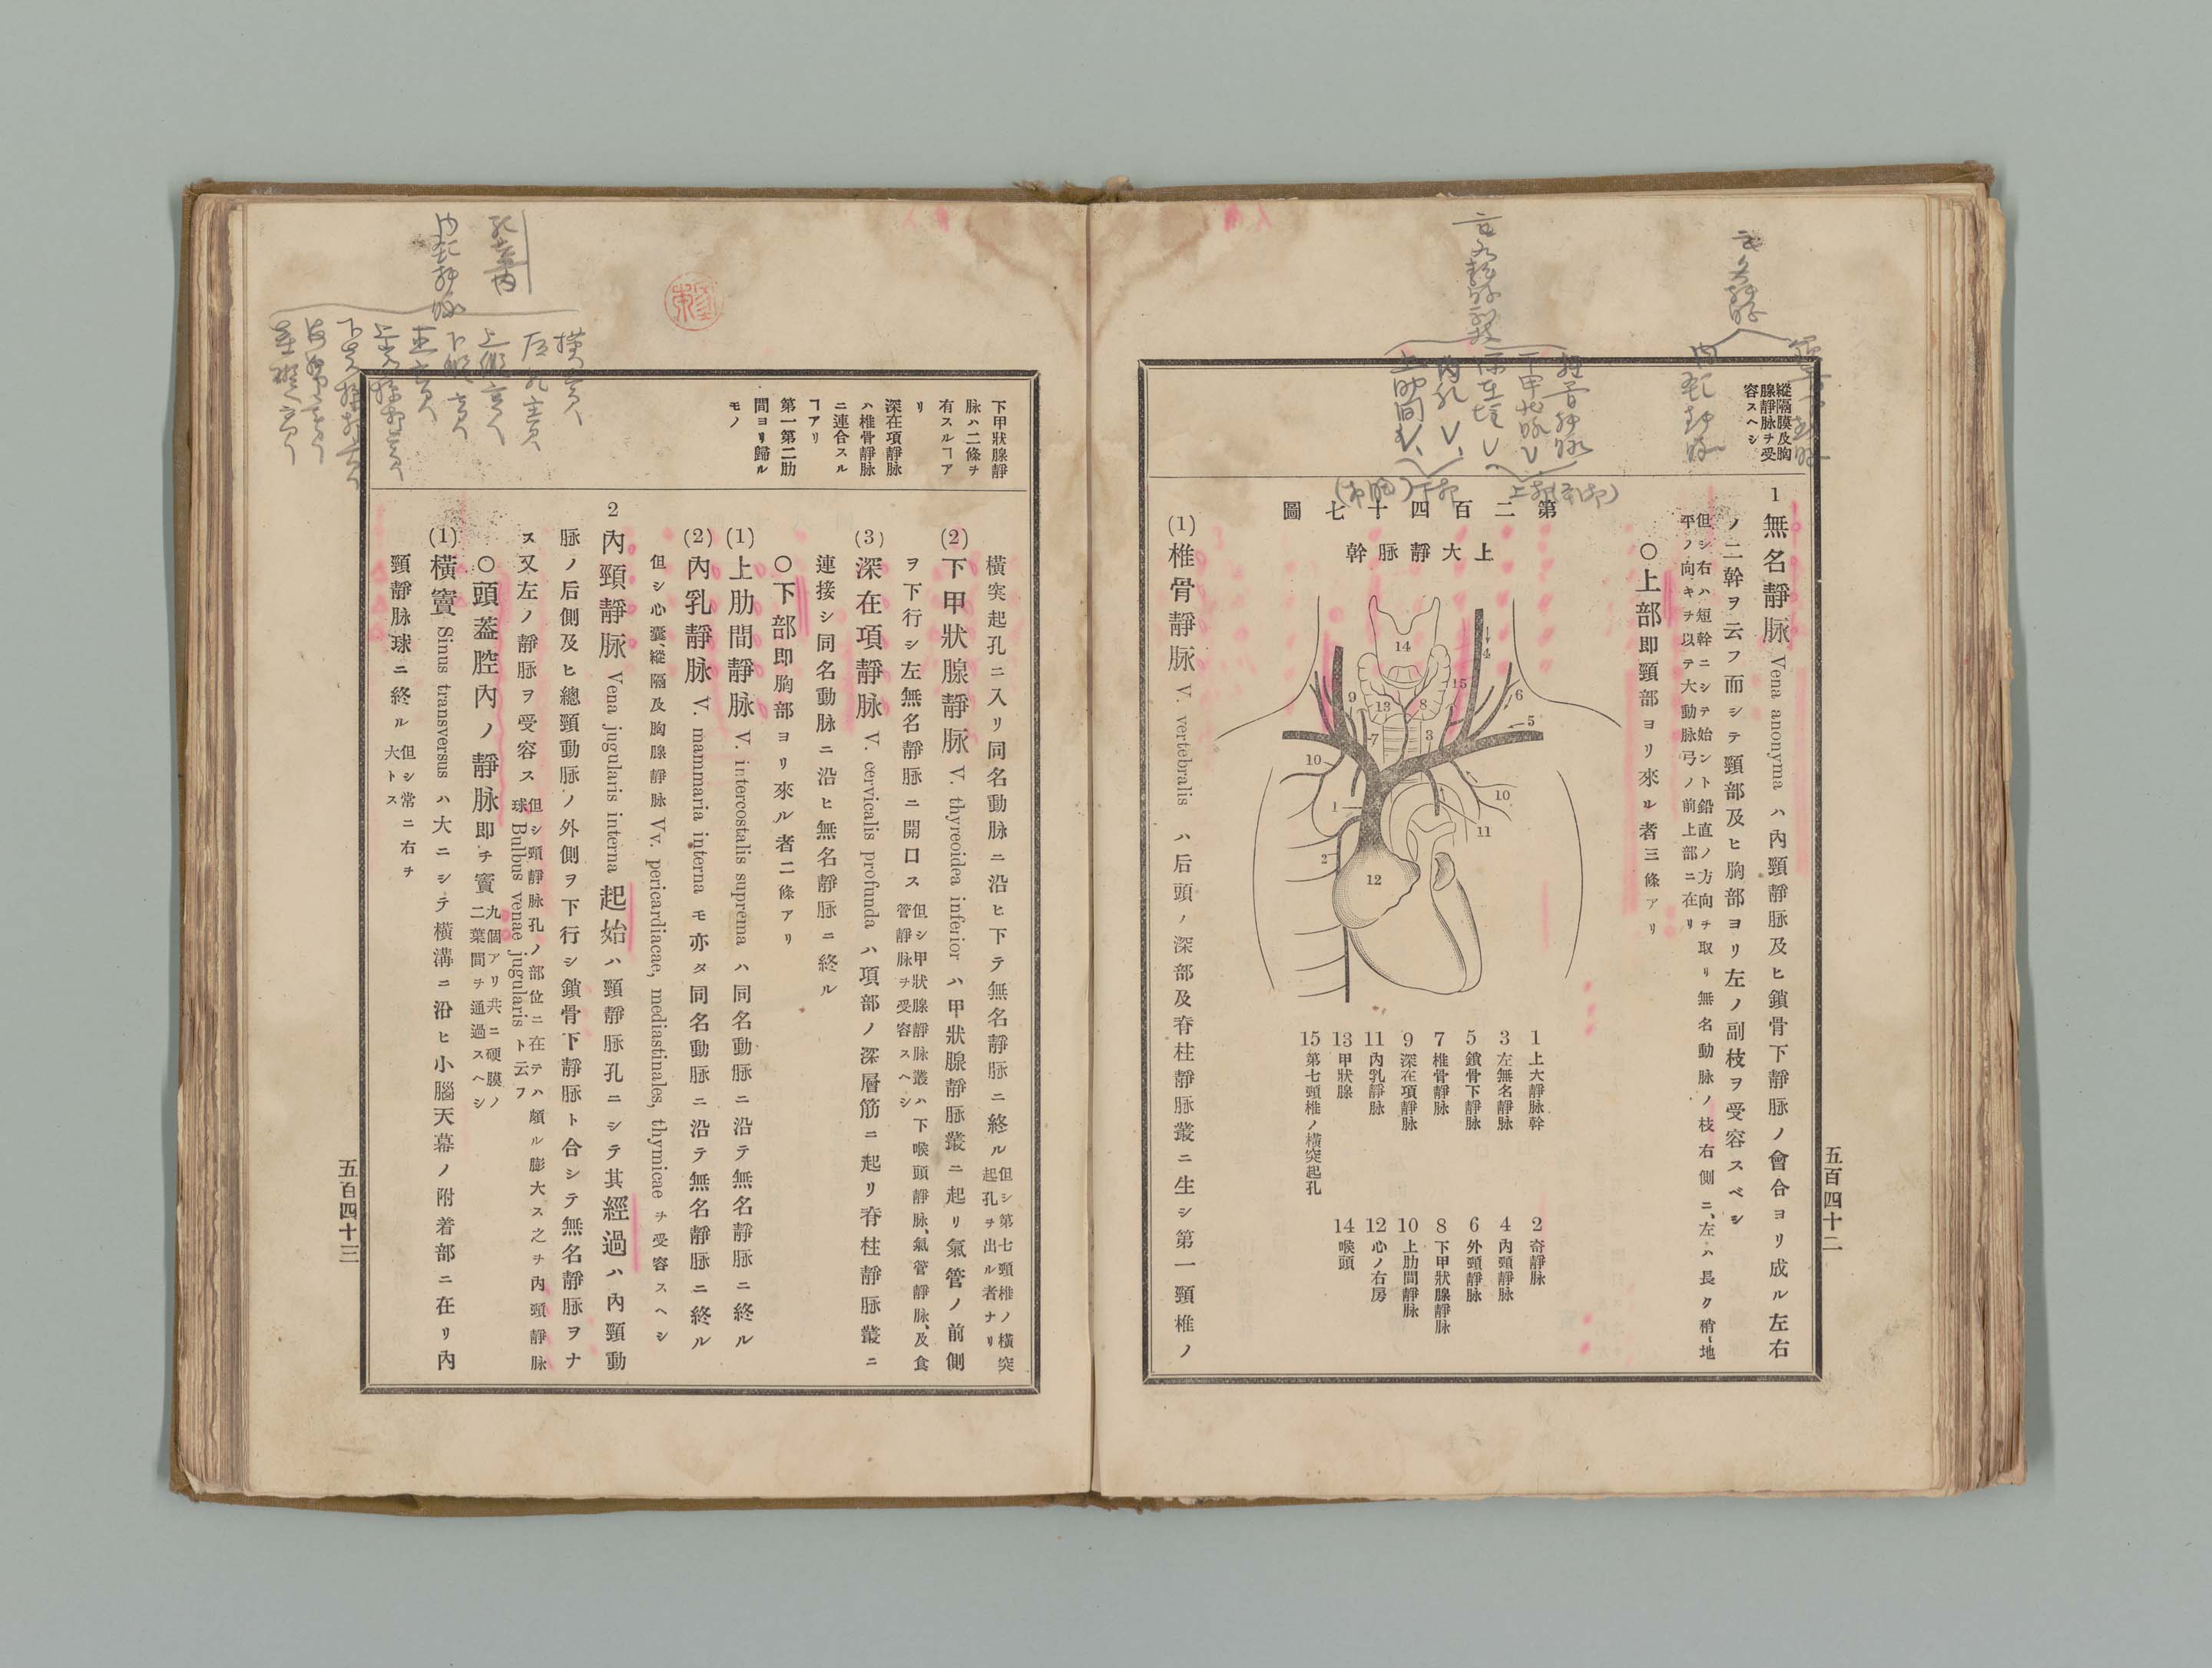 縱隔膜及胸
腺靜脉ヲ受
容スヘシ
1 無名靜脉 Vena anonyma ハ內頸靜脉及ヒ鎖骨下靜脉ノ會合ヨリ成ル左右
ノ二幹ヲ云フ而シテ頸部及ヒ胸部ヨリ左ノ副枝ヲ受容スベシ
但シ右ハ短幹ニシテ始ント鉛直ノ方向ヲ取リ無名動脉ノ枝右側ニ、左ハ長ク稍〻地
平ノ向キヲ以テ大動脉弓ノ前上部ニ在リ
〇上部即頸部ヨリ來ル者三條アリ
第二百四十七圖
上大靜脉幹
14
4
15
6
9
13
8
5
7
3
10
10
1
11
2
12
1 上大靜脉幹
2 奇靜脉
3 左無名靜脉
4 內頸靜脉
5 鎖骨下靜脉
6 外頸靜脉
7 椎骨靜脉
8 下甲狀腺靜脉
9 深在項靜脉
10 上肋間靜脉
11 內乳靜脉
12 心ノ右房
13 甲狀腺
14 喉頭
15 第七頸椎ノ橫突起孔
(1) 椎骨靜脉 V. vertebralis ハ后頭ノ深部及脊柱靜脉叢ニ生シ第一頸椎ノ
五百四十二
下甲狀腺靜
脉ハ二條ヲ
有スルヿア
リ
深在項靜脉
ハ椎骨靜脉
ニ連合スル
ヿアリ
第一第二肋
間ヨリ歸ル
モノ
橫突起孔ニ入リ同名動脉ニ沿ヒ下テ無名靜脉ニ終ル 但シ第七頸椎ノ橫突
起孔ヲ出ル者ナリ
(2) 下甲狀腺靜脉 V. thyreoidea inferior ハ甲狀腺靜脉叢ニ起リ氣管ノ前側
ヲ下行シ左無名靜脉ニ開口ス 但シ甲狀腺靜脉叢ハ下喉頭靜脉、氣管靜脉、及食
管靜脉ヲ受容スヘシ
(3) 深在項靜脉 V. cervicalis profunda ハ項部ノ深層筋ニ起リ脊柱靜脉叢ニ
連接シ同名動脉ニ沿ヒ無名靜脉ニ終ル
〇下部即胸部ヨリ來ル者二條アリ
(1) 上肋間靜脉 V. intercostalis suprema ハ同名動脉ニ沿テ無名靜脉ニ終ル
(2) 內乳靜脉 V. mammaria interna モ亦タ同名動脉ニ沿テ無名靜脉ニ終ル
但シ心囊、縱隔及胸腺靜脉 Vv. pericardiacae, mediastinales, thymicae ヲ受容スヘシ
2 內頸靜脉 Vena jugularis interna 起始ハ頸靜脉孔ニシテ其經過ハ內頸動
脉ノ后側及ヒ總頸動脉ノ外側ヲ下行シ鎖骨下靜脉ト合シテ無名靜脉ヲナ
ス又左ノ靜脉ヲ受容ス 但シ頸靜脉孔ノ部位ニ在テハ頗ル膨大ス之ヲ內頸靜脉
球 Bulbus venae jugularis ト云フ
〇頭蓋腔內ノ靜脉即チ竇 九個アリ共ニ硬膜ノ
二葉間ヲ通過スヘシ
(1) 橫竇 Sinus transversus ハ大ニシテ橫溝ニ沿ヒ小腦天幕ノ附着部ニ在リ內
頸靜脉球ニ終ル 但シ常ニ右ヲ
大トス
五百四十三